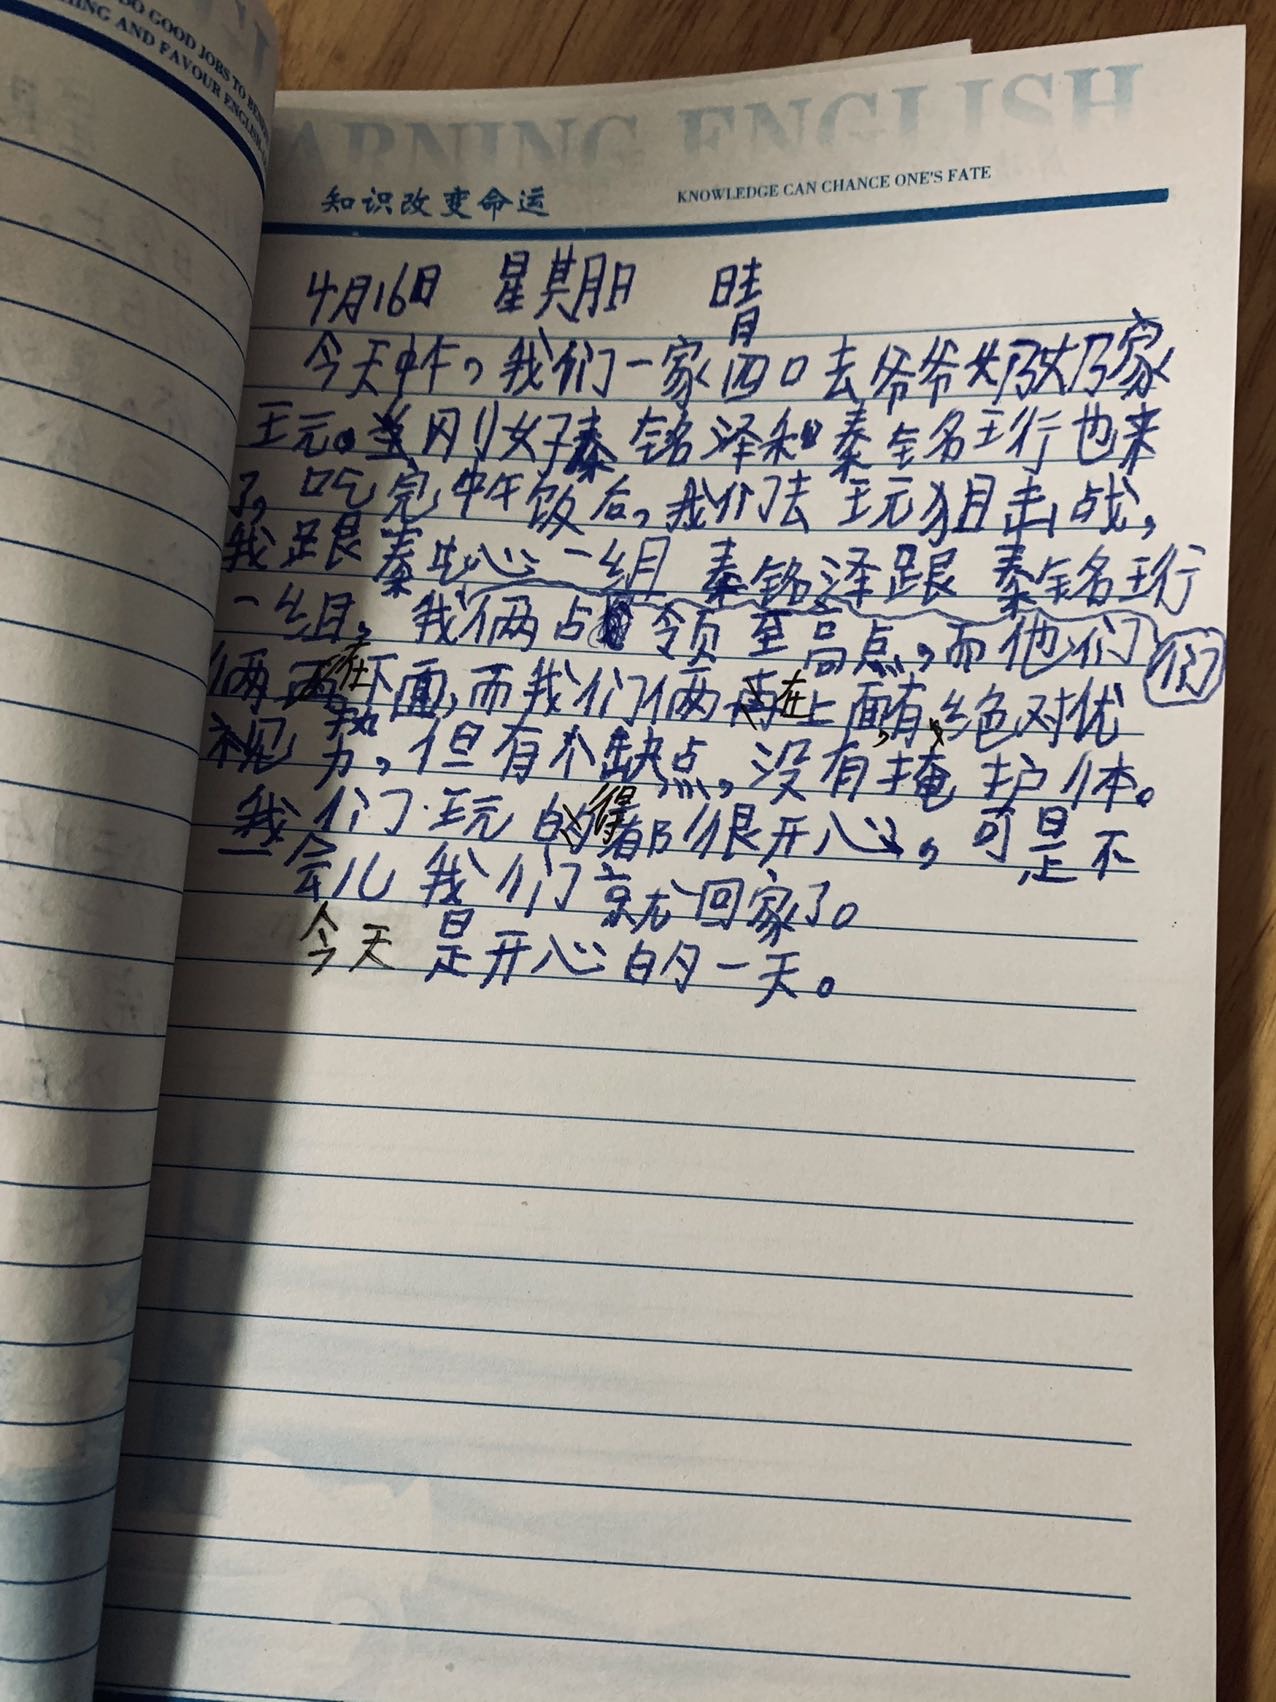 DO GOOD JOBS TO BE
HING AND FAVOUR ENGLISH
ARNING ENGLISH
知识改变命运
KNOWLEDGE CAN CHANCE ONE'S FATE
4月16日 星期日 晴
今天中午，我们一家四口去爷爷奶奶家
玩。刚好秦铭泽和秦铭珩也来
了，吃完中午饭后，我们去玩狙击战，
我跟秦 心一组 秦铭泽跟秦铭珩
一组，我们俩占领至高点，而他们
俩在下面，而我们俩在上面，有绝对优
势，但有个缺点，没有掩护体。
我们玩得都很开心，可是不
一会儿我们就回家了。
今天是开心的一天。